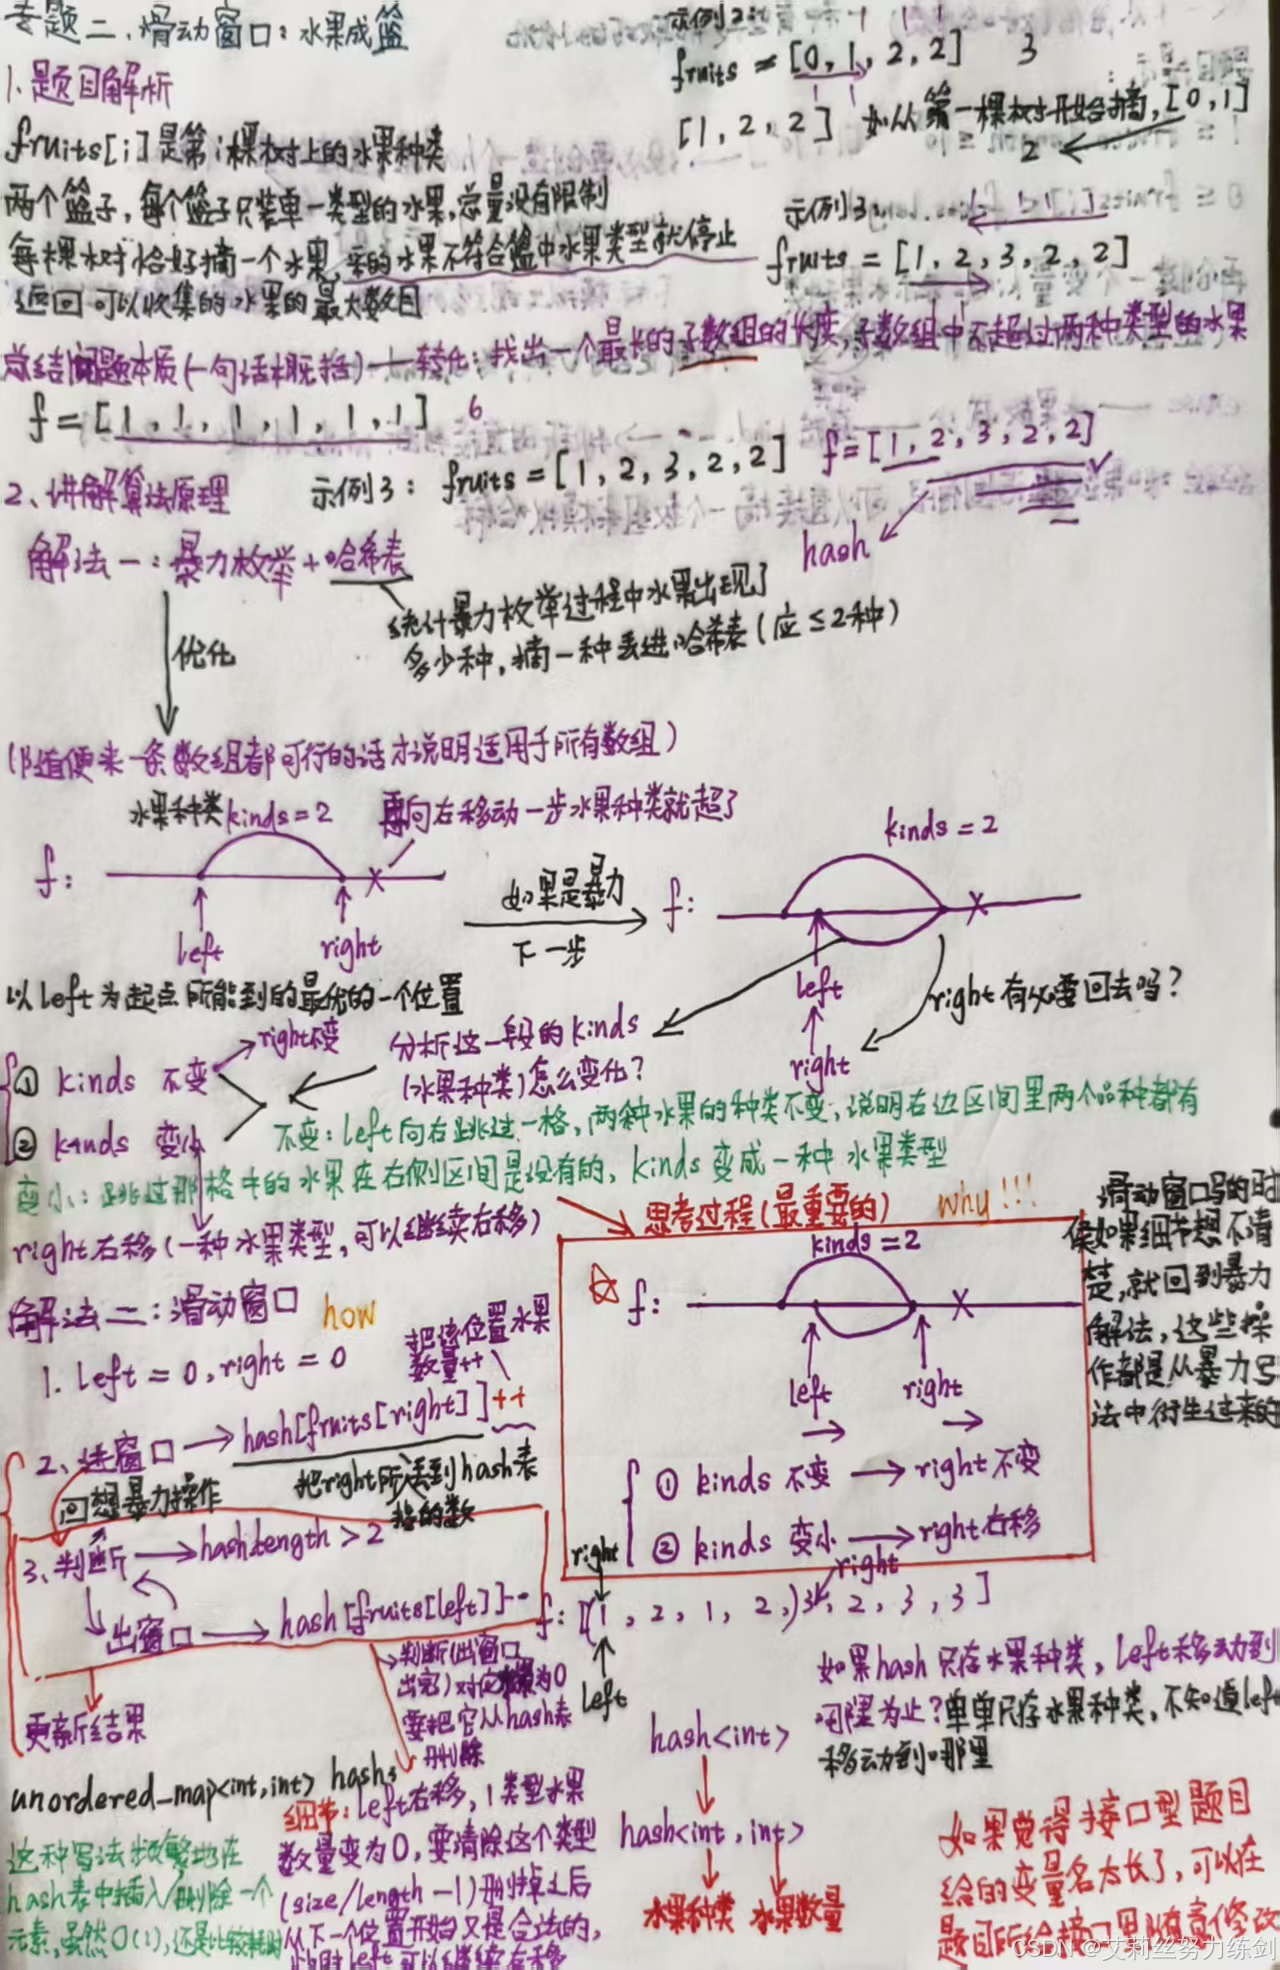 专题二、滑动窗口：水果成篮
1.题目解析
fruits[i]是第i棵树上的水果种类
两个篮子，每个篮子只装单一类型的水果，总量没有限制
每棵树恰好摘一个水果，采的水果不符合篮中水果类型就停止
返回可以收集的水果的最大数目
示例2：
fruits = [0, 1, 2, 2] 3
[1, 2, 2] 如从第一棵树开始摘，[0,1]
2
示例3：
fruits = [1, 2, 3, 2, 2]
总结问题本质(一句话概括)——转化：找出一个最长的子数组的长度，子数组中不超过两种类型的水果
f = [1, 1, 1, 1, 1, 1] 6
2、讲解算法原理
示例3：fruits = [1, 2, 3, 2, 2]
f = [1, 2, 3, 2, 2]
hash
解法一：暴力枚举+哈希表
统计暴力枚举过程中水果出现了
多少种，摘一种丢进哈希表(应≤2种)
优化
(随便来一条数组都可行的话才说明适用于所有数组)
水果种类kinds=2
再向右移动一步水果种类就超了
f：
left right
以left为起点所能到的最优的一个位置
如果是暴力
下一步
kinds=2
f：
left
right
right有必要回去吗？
分析这一段的kinds
(水果种类)怎么变化？
① kinds 不变
right不变
② kinds 变小
不变：left向右跳过一格，两种水果的种类不变，说明右边区间里两个品种都有
变小：跳过那格中的水果在右侧区间是没有的，kinds变成一种水果类型
right右移(一种水果类型，可以继续右移)
思考过程(最重要的)
why!!!
kinds=2
f：
left right
① kinds 不变 → right不变
② kinds 变小 → right右移
滑动窗口写的时
候如果细节想不清
楚，就回到暴力
解法，这些操
作都是从暴力写
法中衍生过来的
解法二：滑动窗口 how
1. left = 0, right = 0
把该位置水果
数量++
2、进窗口 → hash[fruits[right]]++
回想暴力操作
3、判断 → hash.length > 2
出窗口 → hash[fruits[left]]--
更新结果
判断(出窗口
要把它从hash表
删除
right
right
f：[1, 2, 1, 2, 3, 2, 3, 3]
left
如果hash只存水果种类，left移动到
哪里为止？单单只存水果种类，不知道left
移动到哪里
hash<int>
hash<int, int>
水果种类 水果数量
unordered_map<int,int> hash;
这种写法频繁地在
hash表中插入/删除一个
元素，虽然O(1)，还是比较耗时
细节：left右移，1类型水果
数量变为0，要清除这个类型
(size/length -1)删掉之后
从下一个位置开始又是合法的，
此时left可以继续右移
如果觉得接口型题目
给的变量名太长了，可以在
题目所给接口里随意修改
CSDN @艾莉丝努力练剑